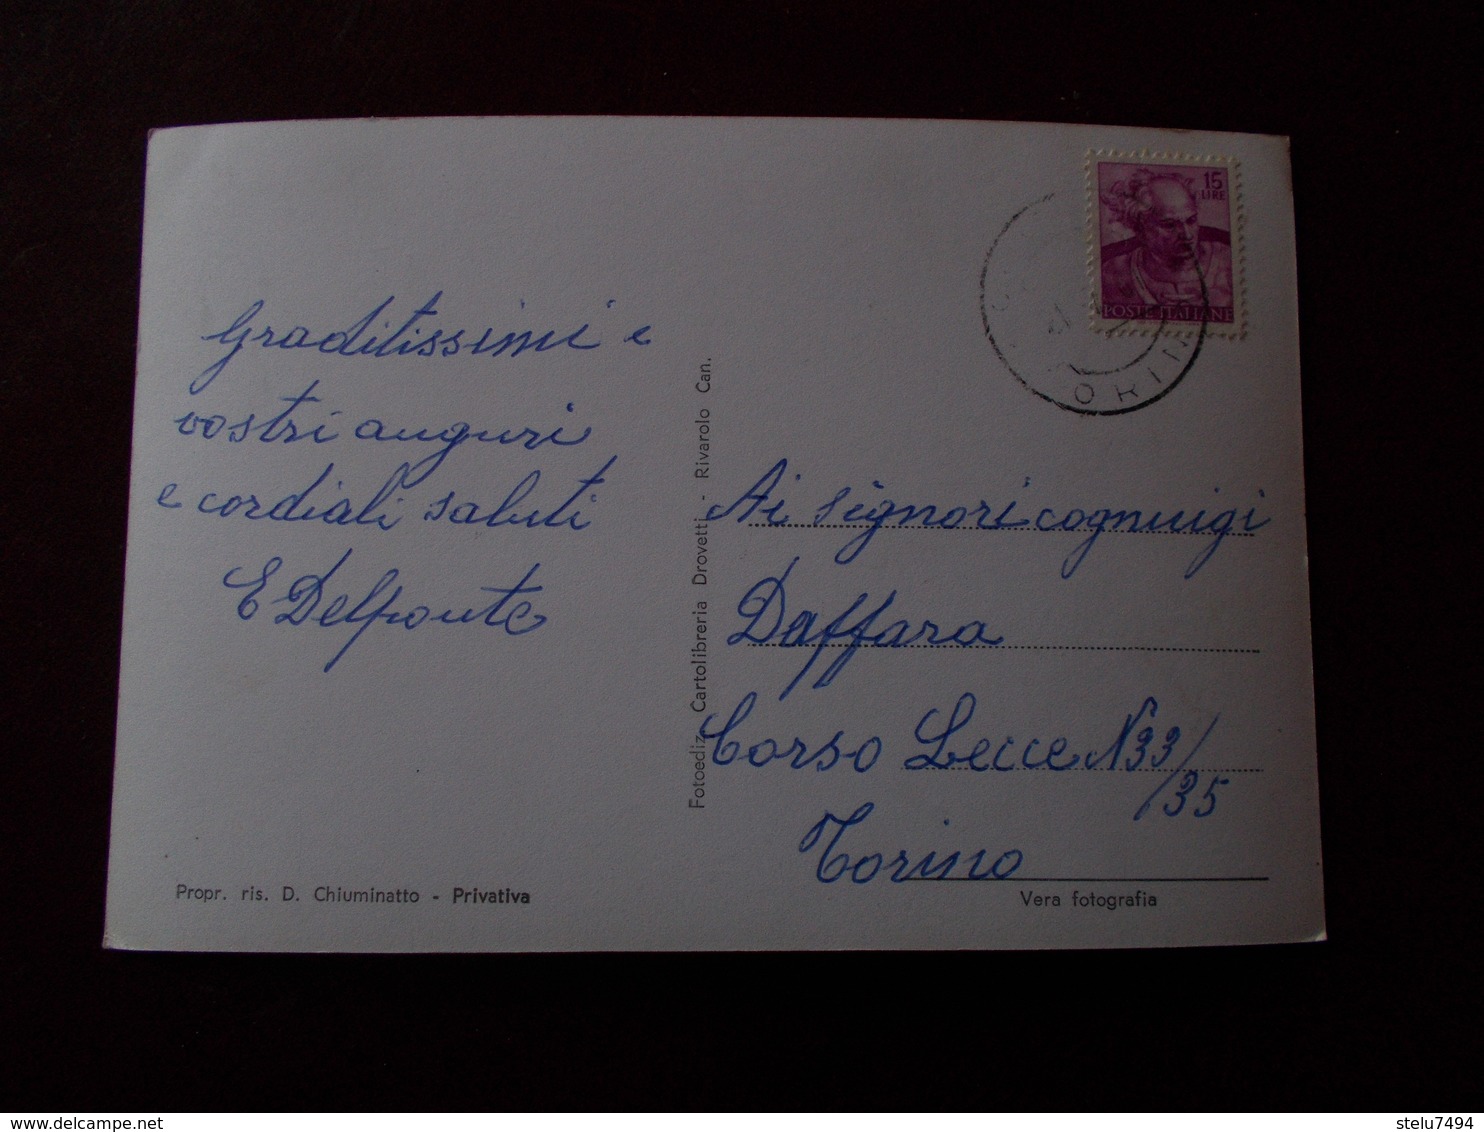 Graditissimi e
vostri auguri
e cordiali saluti
E Delponte
Propr. ris. D. Chiuminatto - Privativa
Fotoediz. Cartolibreria Drovetti - Rivarolo Can.
15
LIRE
POSTE ITALIANE
ORIN
Ai signori cognuigi
Daffara
Corso Lecce N 33/
35
Torino
Vera fotografia
delcampe.net
stelu7494